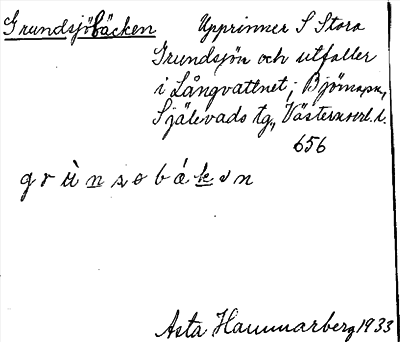 Grundsjöbäcken Upprinner S Stora
Grundsjön och utfaller
i Långvattnet; Björna sn,
Själevads tg., Västernorrl. l.
656
grùnsobákɘn
Asta Hammarberg 1933